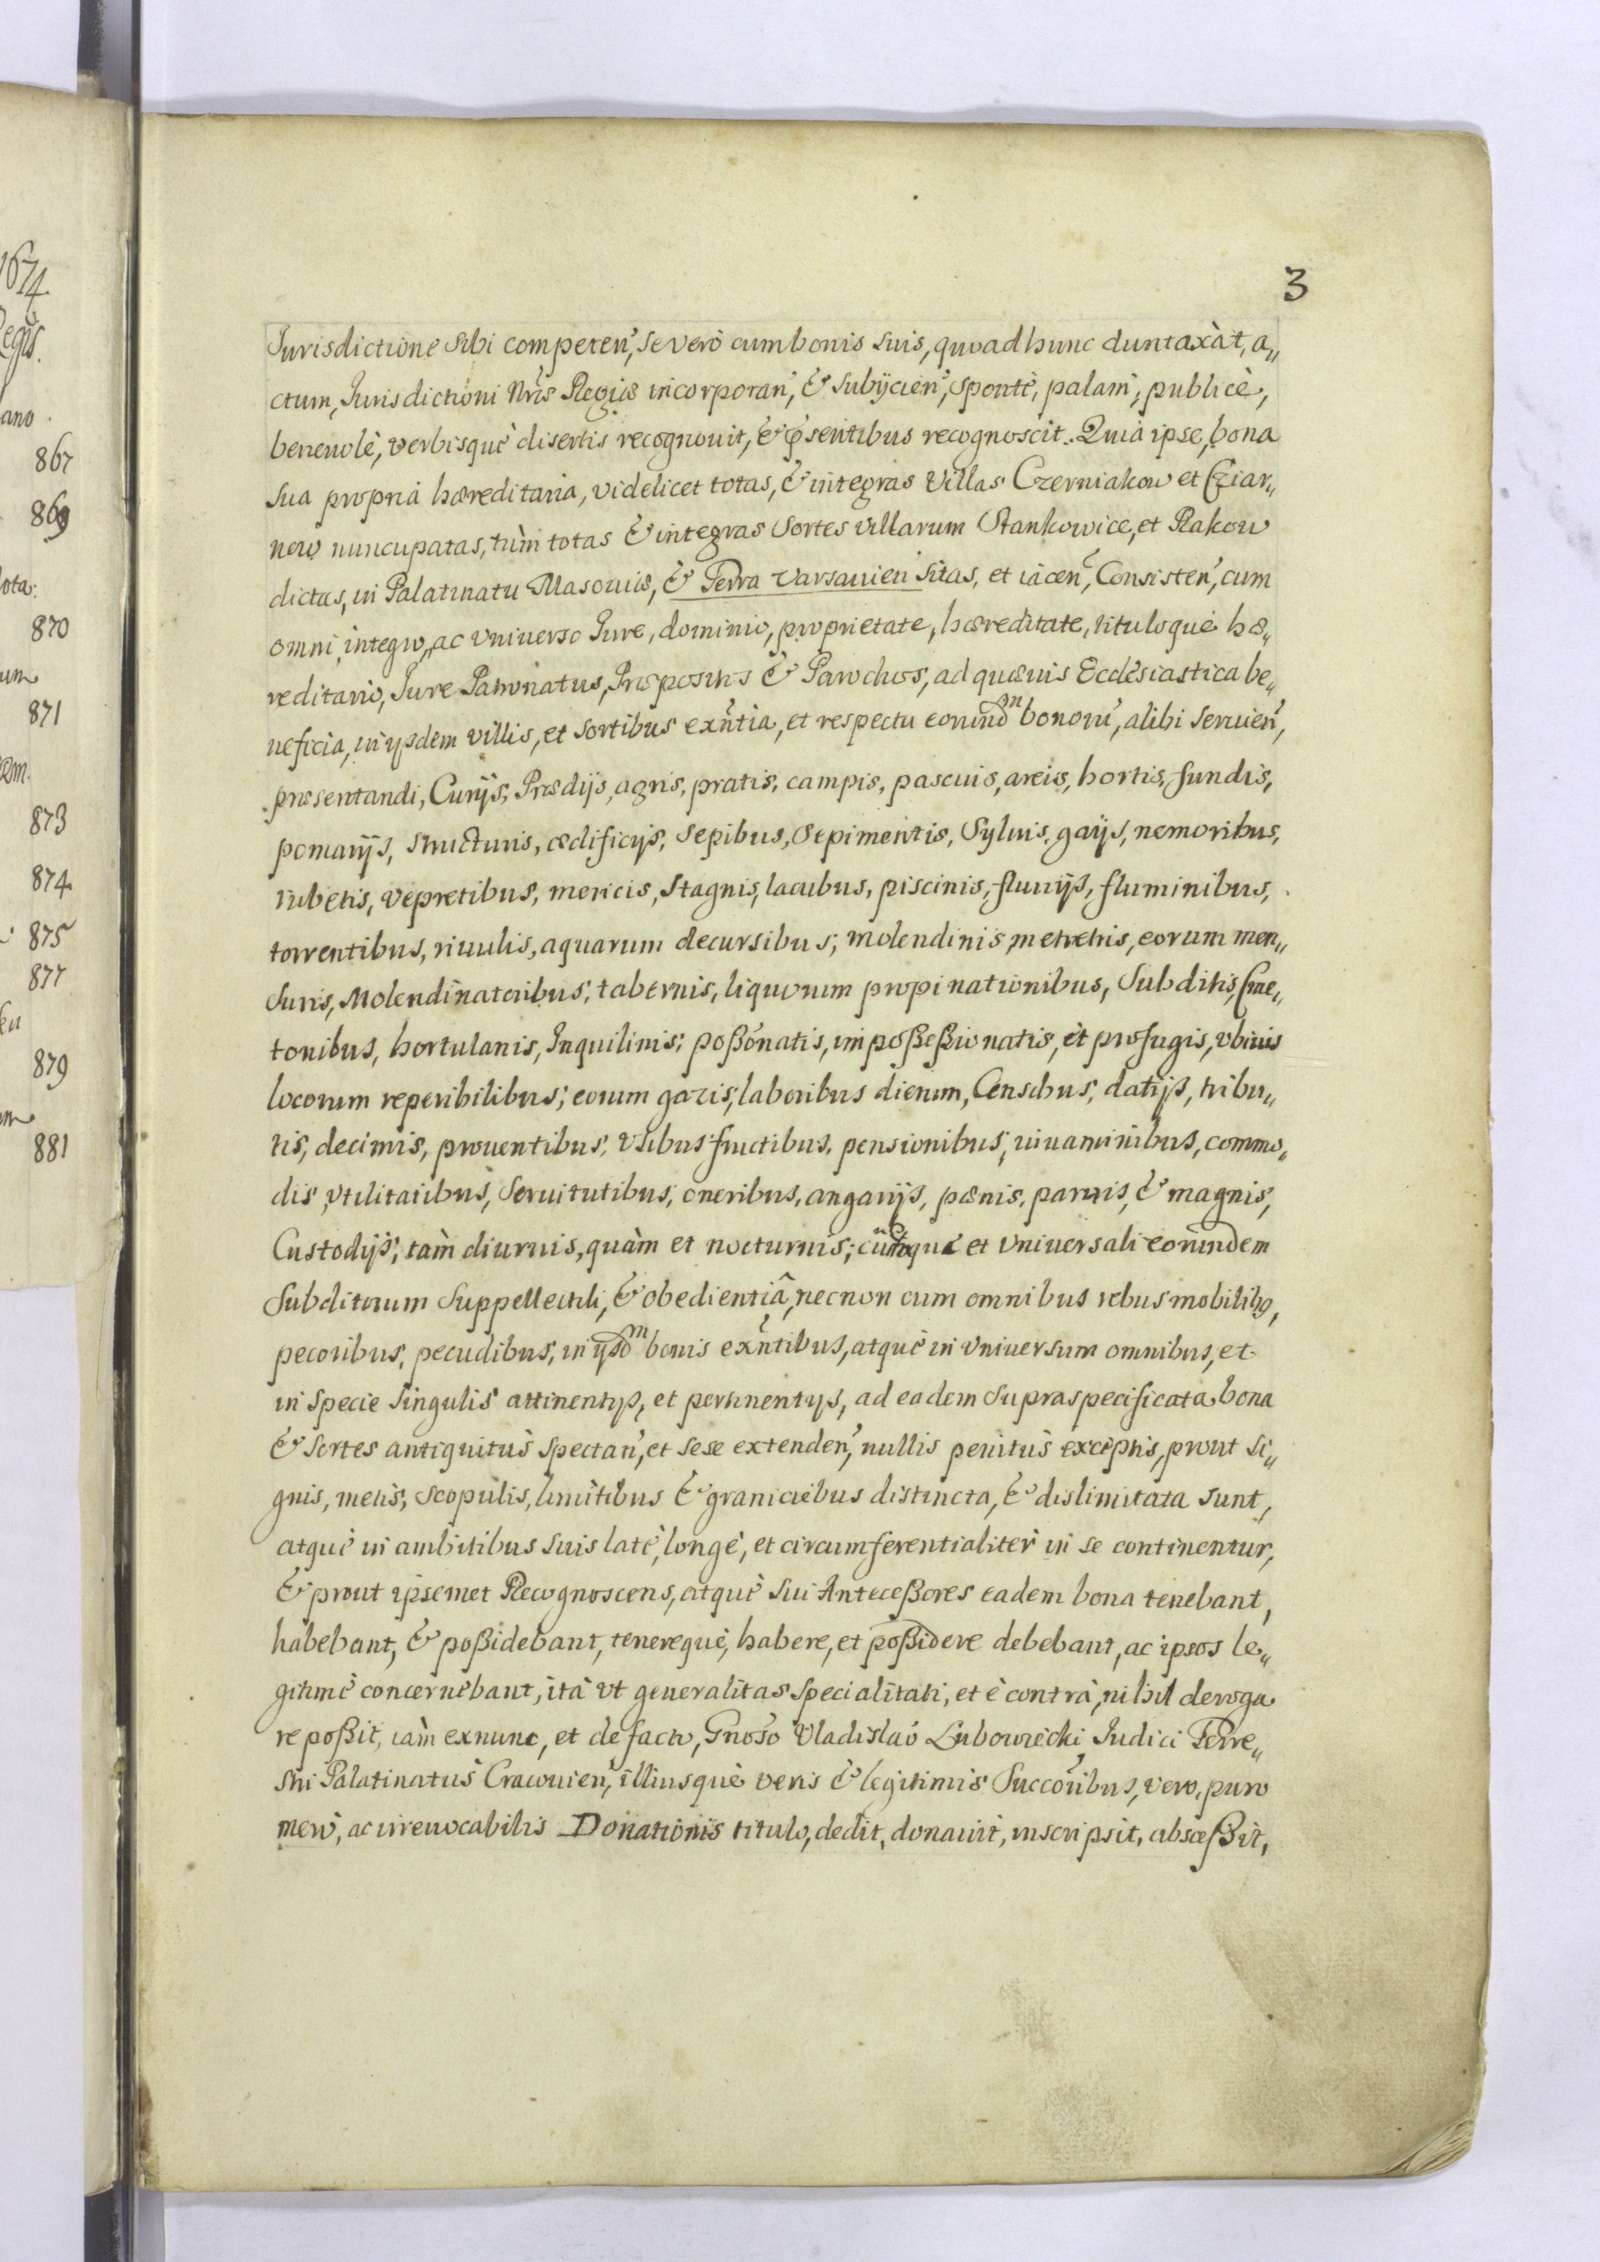 1674
Regis.
ano.
867
869
Nota:
870
um
871
873
874
875
877
879
881
3
Jurisdictione sibi competen', se verò cum bonis suis, quoad hunc duntaxàt, a„
ctum, Jurisdictioni Nr̃is Regiæ incorporan', & subijcien', spontè, palam, publicè,
beneuolè, verbisquè disertis recognouit, & p̃sentibus recognoscit. Quià ipse, bona
sua proprià hæreditaria, videlicet totas, & integras Villas Czerniakow et Cziar„
now nuncupatas, tùm totas & integras Sortes villarum Stankowice, et Rakow
dictas, in Palatinatu Masouiæ, & Terra Varsauien sitas, et iàcen', Consisten', cum
omni, integro, ac vniuerso Jure, dominio, proprietate, hæreditate, tituloquè hæ„
reditario, Jure Patronatus, Præpositos & Parochos, ad quæuis Ecclesiastica be„
neficia, in ijsdem villis, et sortibus exñtia, et respectu eorund̃m bonorũ, alibi seruien',
præsentandi, Curijs, Prædijs, agris, pratis, campis, pascuis, areis, hortis, fundis,
pomarijs, structuris, ædificijs, sepibus, Sepimentis, Syluis, gaijs, nemoribus,
rubetis, vepretibus, mericis, stagnis, lacubus, piscinis, fluuijs, fluminibus,
torrentibus, riuulis, aquarum decursibus, molendinis, metretis, eorum men„
suris, Molendinatoribus, tabernis, liquorum propinationibus, Subditis, Cme„
tonibus, hortulanis, Inquilinis, poßõnatis, impoßeßionatis, èt profugis, vbiuis
locorum reperibilibus, eorum gazis, laboribus dierum, Censibus, datijs, tribu„
tis, decimis, prouentibus, vsibusfructibus, pensionibus, iuuaminibus, commo„
dis, vtilitatibus, Seruitutibus, oneribus, angarijs, pænis, paruis, & magnis,
Custodijs, tàm diurnis, quàm et nocturnis, et vniuersali eorundem
Subditorum Suppellectili, & obedientiâ, necnon cum omnibus rebus mobilibꝫ,
pecoribus, pecudibus, in ijsd̃m bonis exñtibus, atquè in vniuersum omnibus, et
in specie singulis attinentijs, et pertinentijs, ad eadem supraspecificata bona
& sortes antiquitùs spectan', et sese extenden', nullis penitùs exceptis, prout si„
gnis, metis, scopulis, limitibus & graniciebus distincta, & dislimitata sunt,
atquè in ambitibus suis latè, longè, et circumferentialitèr in se continentur,
& prout ipsemet Recognoscens, atquè sui Anteceßores eadem bona tenebant,
habebant, & poßidebant, tenerequè, habere, et poßidere debebant, ac ipsos le„
gitimè concernebant, ità vt generalitas specialitati, et è contrà, nihil deroga
re poßit, iàm exnunc, et de facto, Gnoso Vladislao Lubowiecki Judici Terre„
stri Palatinatus Cracouien', illiusquè veris & legitimis Succoribus, vero, puro
mero, ac irreuocabilis Donationis titulo, dedit, donauit, inscripsit, absceßit,